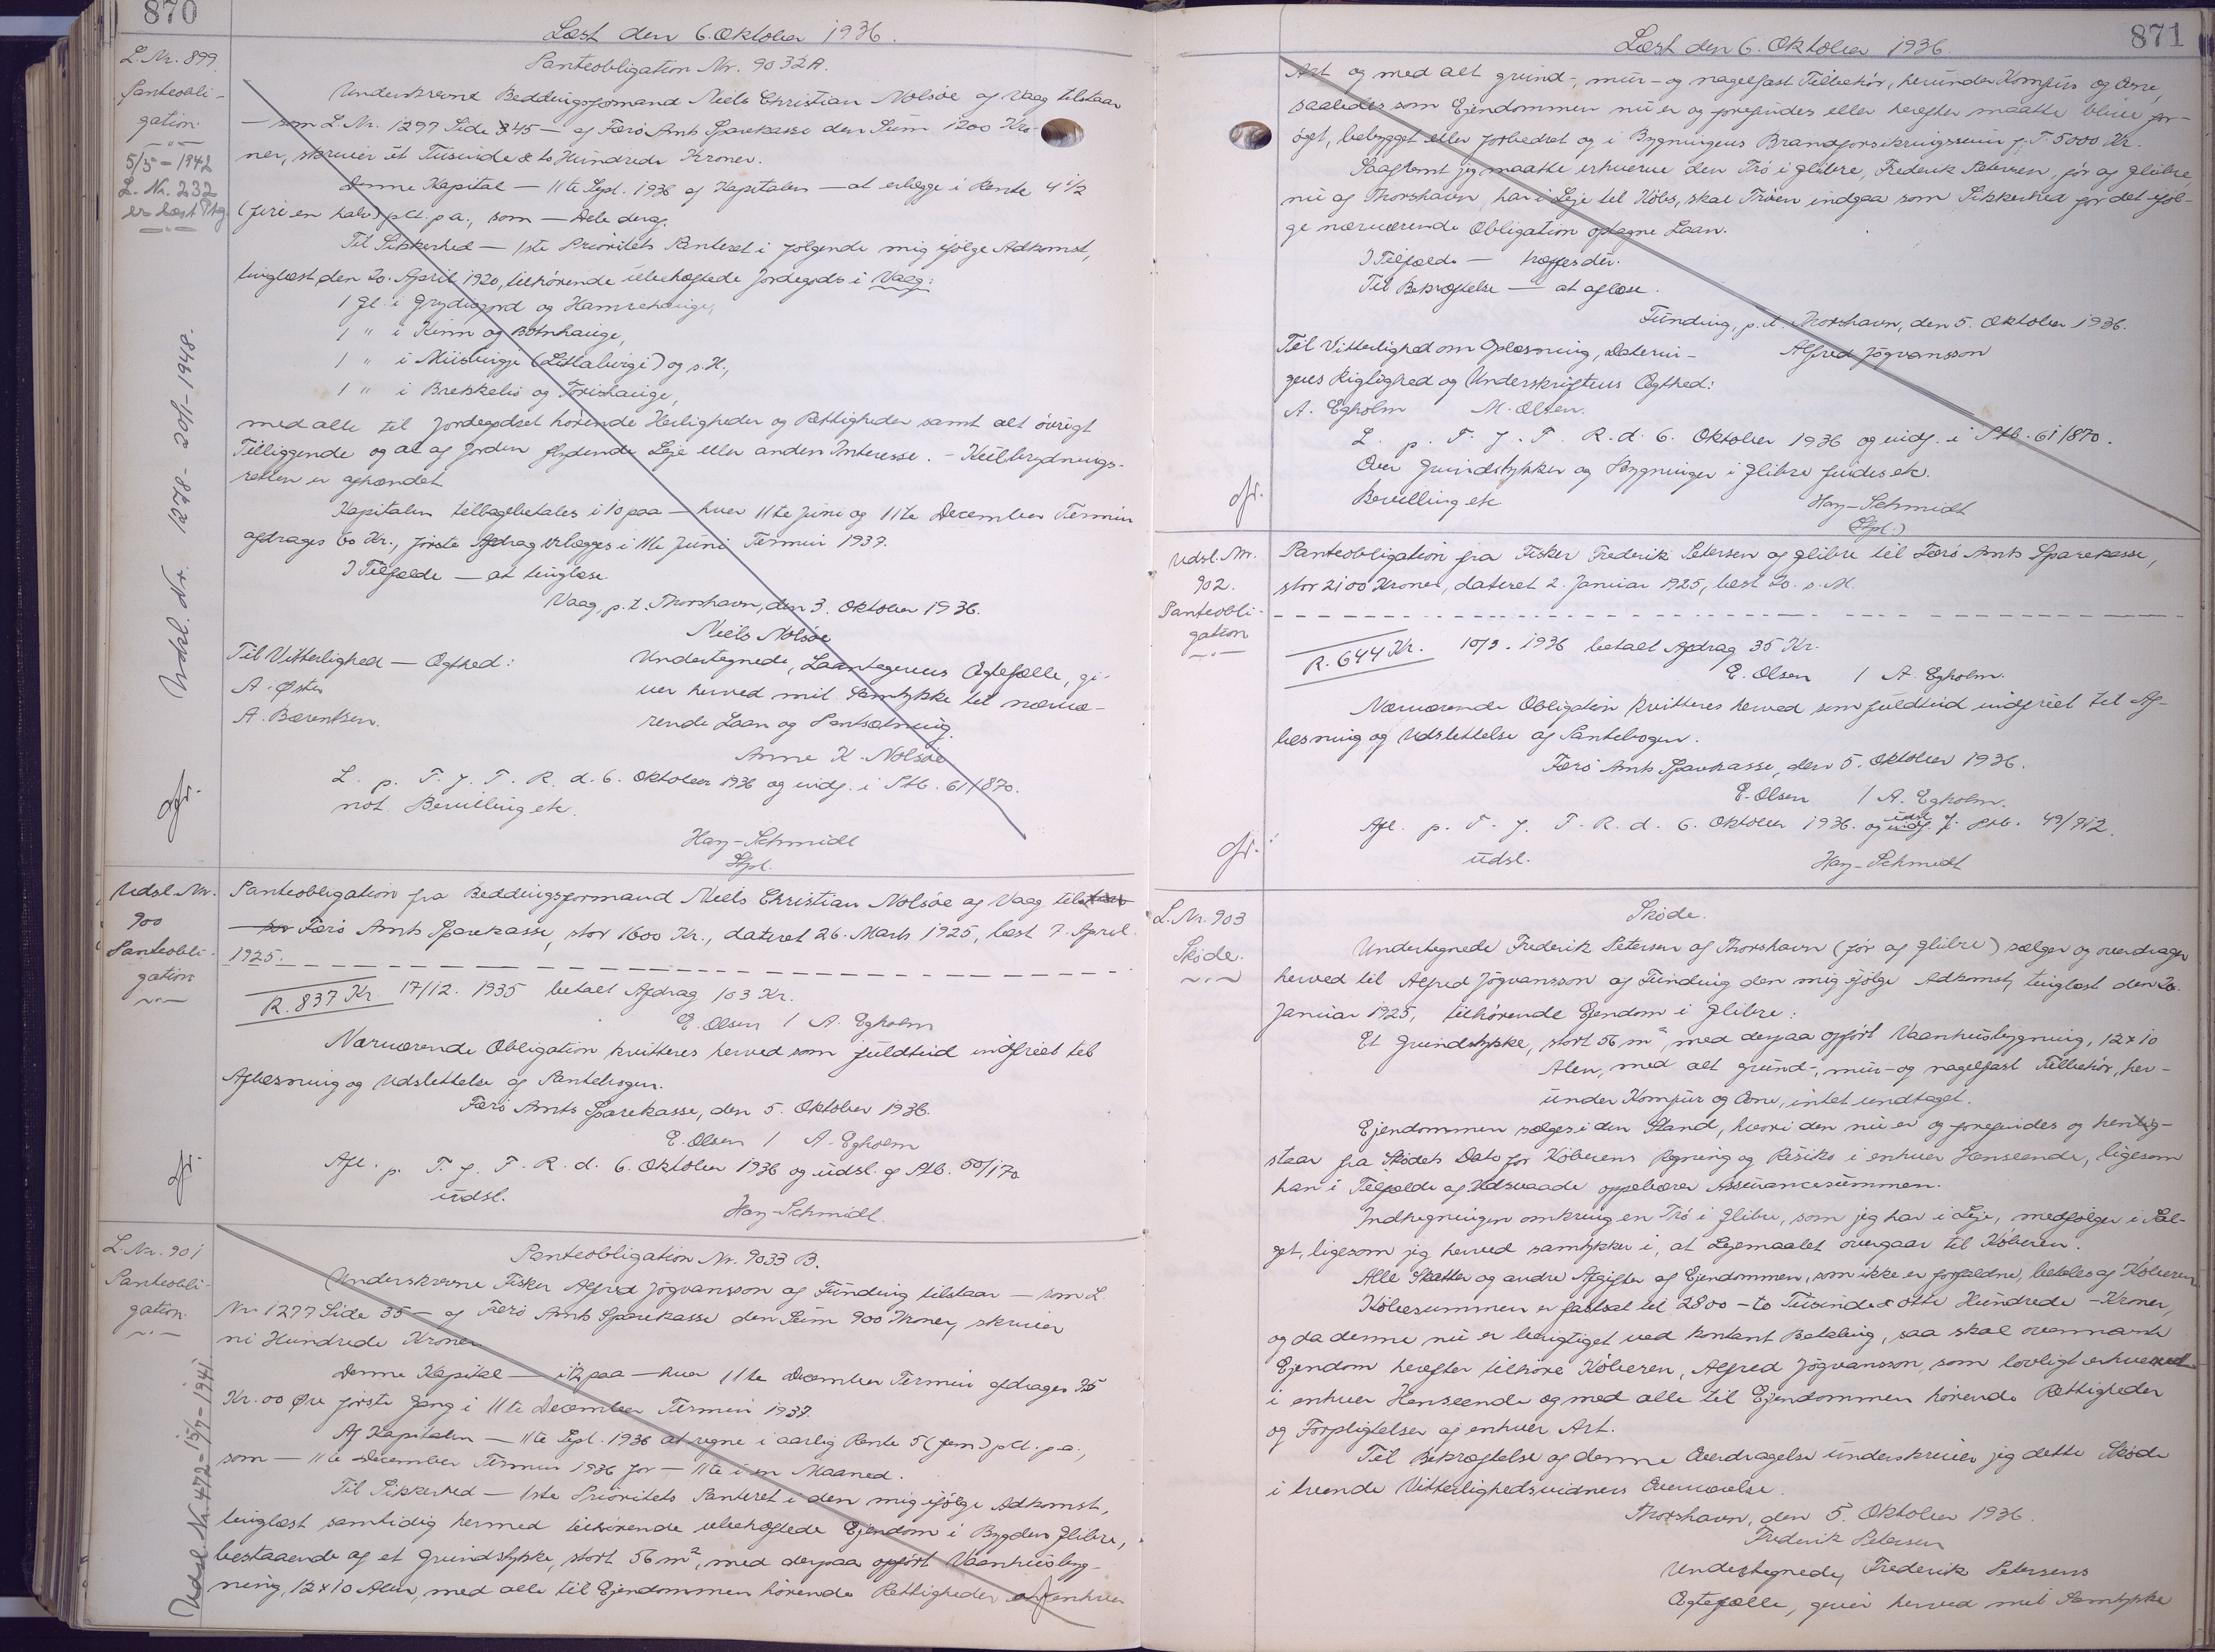 870
Læst den 6. Oktober 1936.
L. Nr. 899
Panteobli-
gation
5/5 - 1942
L. Nr. 232
er læst Ptg.
Udsl. Nr. 1278 - 20/1 - 1948.
Panteobligation Nr. 9032A.
Underskrevne Beddingsformand Niels Christian Nolsøe af Vaag tilstaar
— som L. Nr. 1297 Side 345 — af Færø Amts Sparekasse den Sum 1200 Kro-
ner, skriver et Tusinde & to Hundrede Kroner.
Denne Kapital — 11te Sept. 1936 af Kapitalen — at erlægge i Rente 4 1/2
(fire en halv) pCt. p.a., som — Dele deraf.
Til Sikkerhed — 1ste Prioritets Panteret i følgende mig ifølge Adkomst,
tinglæst den 20. April 1920, tilhørende ubehæftede Jordegods i Vaag:
1 Gl. i Grydisgord og Hamrehauge,
1 " i Kinn og Botnhauge,
1 " i Miisbirgje (Litlabirgi) og s. H.,
1 " i Brekkelis og Torishauge,
med alle til Jordegodset hørende Herligheder og Rettigheder samt alt øvrigt
Tilliggende og al af Jorden flydende Leje eller anden Interesse. - Kulbrydnings-
retten er afhændet.
Kapitalen tilbagebetales i 10 paa — hver 11te Juni og 11te December Termin
afdrages 60 Kr., første Afdrag erlægges i 11te Juni Termin 1937.
I Tilfælde — at tinglæse
Vaag, p.t. Thorshavn, den 3. Oktober 1936.
Niels Nolsøe
Til Vitterlighed — Ægthed:
A. Øster
A. Bærentsen.
Undertegnede, Laantagerens Ægtefælle, gi-
ver herved mit Samtykke til nærvæ-
rende Laan og Pantsætning.
Anne K. Nolsøe
L. p. T. f. T. R. d. 6. Oktober 1936 og indf. i Ptb. 61/870.
not. Bevilling etc.
Hay-Schmidt
Stpl.
Udsl. Nr.
900
Panteobli-
gation
Panteobligation fra Beddingsformand Niels Christian Nolsøe af Vaag til
Færø Amts Sparekasse, stor 1600 Kr., dateret 26. Marts 1925, læst 7. April
1925.
R. 837 Kr. 17/12. 1935 betalt Afdrag 103 Kr.
E. Olsen / A. Egholm
Nærværende Obligation kvitteres herved som fuldtud indfriet til
Aflæsning og Udslettelse af Pantebogen.
Færø Amts Sparekasse, den 5. Oktober 1936.
E. Olsen / A. Egholm
Afl. p. T. f. T. R. d. 6. Oktober 1936 og udsl. af Ptb. 50/170
udsl.
Hay-Schmidt.
L. Nr. 901
Panteobli-
gation
Udsl. Nr. 472 - 15/7 - 1941
Panteobligation Nr. 9033 B.
Underskrevne Fisker Alfred Jógvansson af Funding tilstaar — som L.
Nr. 1277 Side 35 — af Færø Amts Sparekasse den Sum 900 Kroner, skriver
ni Hundrede Kroner
Denne Kapital — i 12 paa — hver 11te December Termin afdrages 75
Kr. 00 Øre første Gang i 11te December Termin 1937.
Af Kapitalen — 11te Sept. 1936 at regne i aarlig Rente 5 (fem) pCt. p.a.,
som — 11te December Termin 1936 for — 11te i en Maaned.
Til Sikkerhed — 1ste Prioritets Panteret i den mig ifølge Adkomst,
tinglæst samtidig hermed tilhørende ubehæftede Ejendom i Bygden Glibre,
bestaaende af et Grundstykke, stort 56 m², med derpaa opført Vaanhusbyg-
ning, 12 x 10 Alen, med alle til Ejendommen hørende Rettigheder af enhver
871
Læst den 6. Oktober 1936.
Art og med alt grund-, mur- og nagelfast Tilbehør, herunder Komfur og Ovne,
saaledes som Ejendommen nu er og forefindes eller herefter maatte blive for-
øget, bebygget eller forbedret og i Bygningens Brandforsikringssum p.T. 5000 Kr.
Saafremt jeg maatte erhverve den Trø i Glibre, Frederik Petersen, før af Glibre,
nu af Thorshavn, har i Leje til Købs, skal Trøen indgaa som Sikkerhed for det iføl-
ge nærværende Obligation optagne Laan.
I Tilfælde — træffes der.
Til Bekræftelse — at aflæse.
Funding, p.t. Thorshavn, den 5. Oktober 1936.
Alfred Jógvansson
Til Vitterlighed om Oplæsning, Daterin-
gens Rigtighed og Underskriftens Ægthed:
A. Egholm M. Olsen.
L. p. T. f. T. R. d. 6. Oktober 1936 og indf. i Ptb. 61/870.
Over Grundstykker og Bygninger i Glibre findes etc.
Bevilling etc
Hay-Schmidt
(Stpl.)
Udsl. Nr.
902.
Panteobli-
gation
Panteobligation fra Fisker Frederik Petersen af Glibre til Færø Amts Sparekasse,
stor 2100 Kroner, dateret 2. Januar 1925, læst 20. s. M.
R. 644 Kr. 10/3. 1936 betalt Afdrag 35 Kr.
E. Olsen / A. Egholm.
Nærværende Obligation kvitteres herved som fuldtud indfriet til Af-
læsning og Udslettelse af Pantebogen.
Færø Amts Sparekasse, den 5. Oktober 1936.
E. Olsen / A. Egholm.
Afl. p. T. f. T. R. d. 6. Oktober 1936. og udsl. af Ptb. 49/712.
udsl.
Hay-Schmidt
L. Nr. 903
Skøde.
Skøde.
Undertegnede Frederik Petersen af Thorshavn (før af Glibre) sælger og overdrager
herved til Alfred Jógvansson af Funding den mig ifølge Adkomst, tinglæst den 20.
Januar 1925, tilhørende Ejendom i Glibre:
Et Grundstykke, stort 56 m², med derpaa opført Vaanhusbygning, 12 x 10
Alen, med alt grund-, mur- og nagelfast Tilbehør, her-
under Komfur og Ovne, intet undtaget.
Ejendommen sælges i den Stand, hvori den nu er og forefindes og henlig-
staar fra Skødets Dato for Køberens Regning og Risiko i enhver Henseende, ligesom
han i Tilfælde af Ildsvaade oppebærer Assurancesummen.
Indhegningen omkring en Trø i Glibre, som jeg har i Leje, medfølger i Sal-
get, ligesom jeg herved samtykker i, at Lejemaalet overgaar til Køberen.
Alle Skatter og andre Afgifter af Ejendommen, som ikke er forfaldne, betales af Køberen
Købesummen er fastsat til 2800 - to Tusinde & otte Hundrede - Kroner,
og da denne nu er berigtiget ved kontant Betaling, saa skal ovennævnte
Ejendom herefter tilhøre Køberen, Alfred Jógvansson, som lovligt erhvervet
i enhver Henseende og med alle til Ejendommen hørende Rettigheder
og Forpligtelser af enhver Art.
Til Bekræftelse af denne Overdragelse underskriver jeg dette Skøde
i tvende Vitterlighedsvidners Overværelse.
Thorshavn, den 5. Oktober 1936.
Frederik Petersen
Undertegnede, Frederik Petersens
Ægtefælle, giver herved mit Samtykke